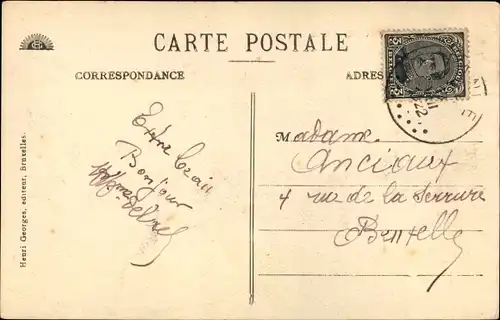 CARTE POSTALE
CORRESPONDANCE
ADRES
22
Bonjour
Madame
Anciaux
4 rue de la Serrure
Bruxelles
Henri Georges, éditeur, Bruxelles.